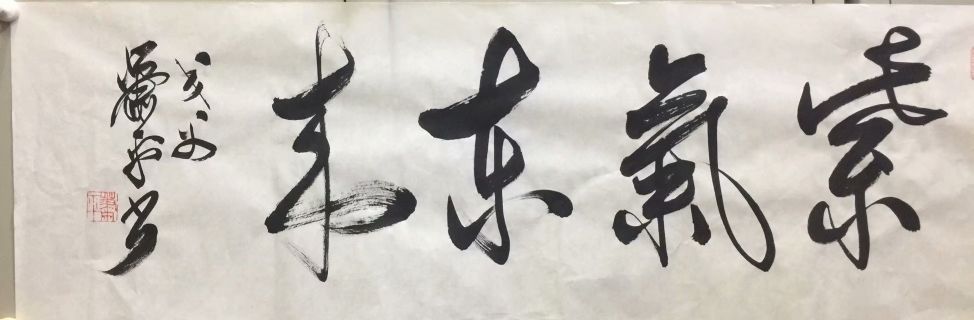 紫氣東来
戊戌